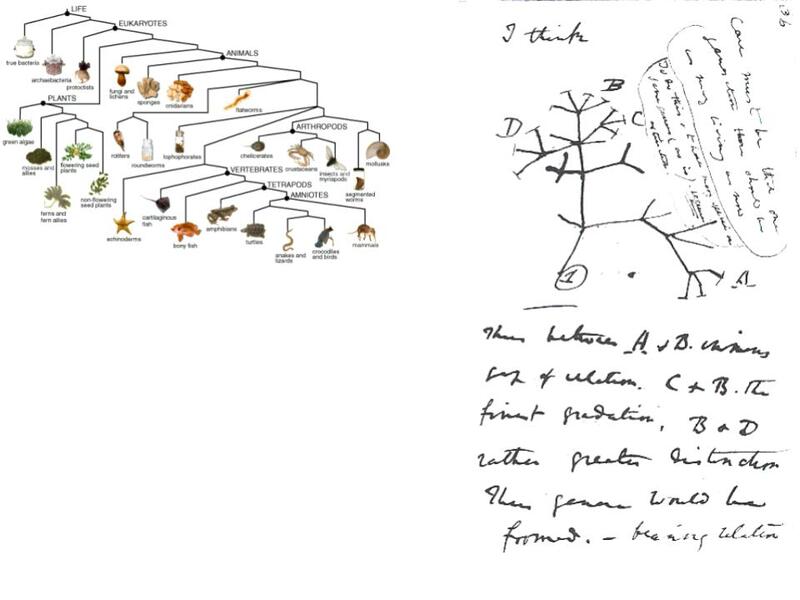 LIFE
EUKARYOTES
true bacteria
archaebacteria
protoctists
ANIMALS
fungi and
lichens
sponges
cnidarians
flatworms
PLANTS
green algae
mosses and
allies
flowering seed
plants
ferns and
fern allies
non-flowering
seed plants
rotifers
roundworms
lophophorates
ARTHROPODS
chelicerates
crustaceans
insects and
myriapods
mollusks
segmented
worms
VERTEBRATES
TETRAPODS
AMNIOTES
echinoderms
cartilaginous
fish
bony fish
amphibians
turtles
snakes and
lizards
crocodiles
and birds
mammals
36
I think
B
C
D
A
1
Case must be that one
generation then should be
as many living as now
To do this & to have many species in
same genus (as is) requires
extinction
Thus between A & B. immens
gap of relation. C & B. the
finest gradation, B & D
rather greater distinction
Thus genera would be
formed. — bearing relation